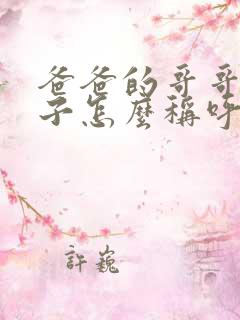 爸爸的哥哥
子怎麼稱呼
許巍